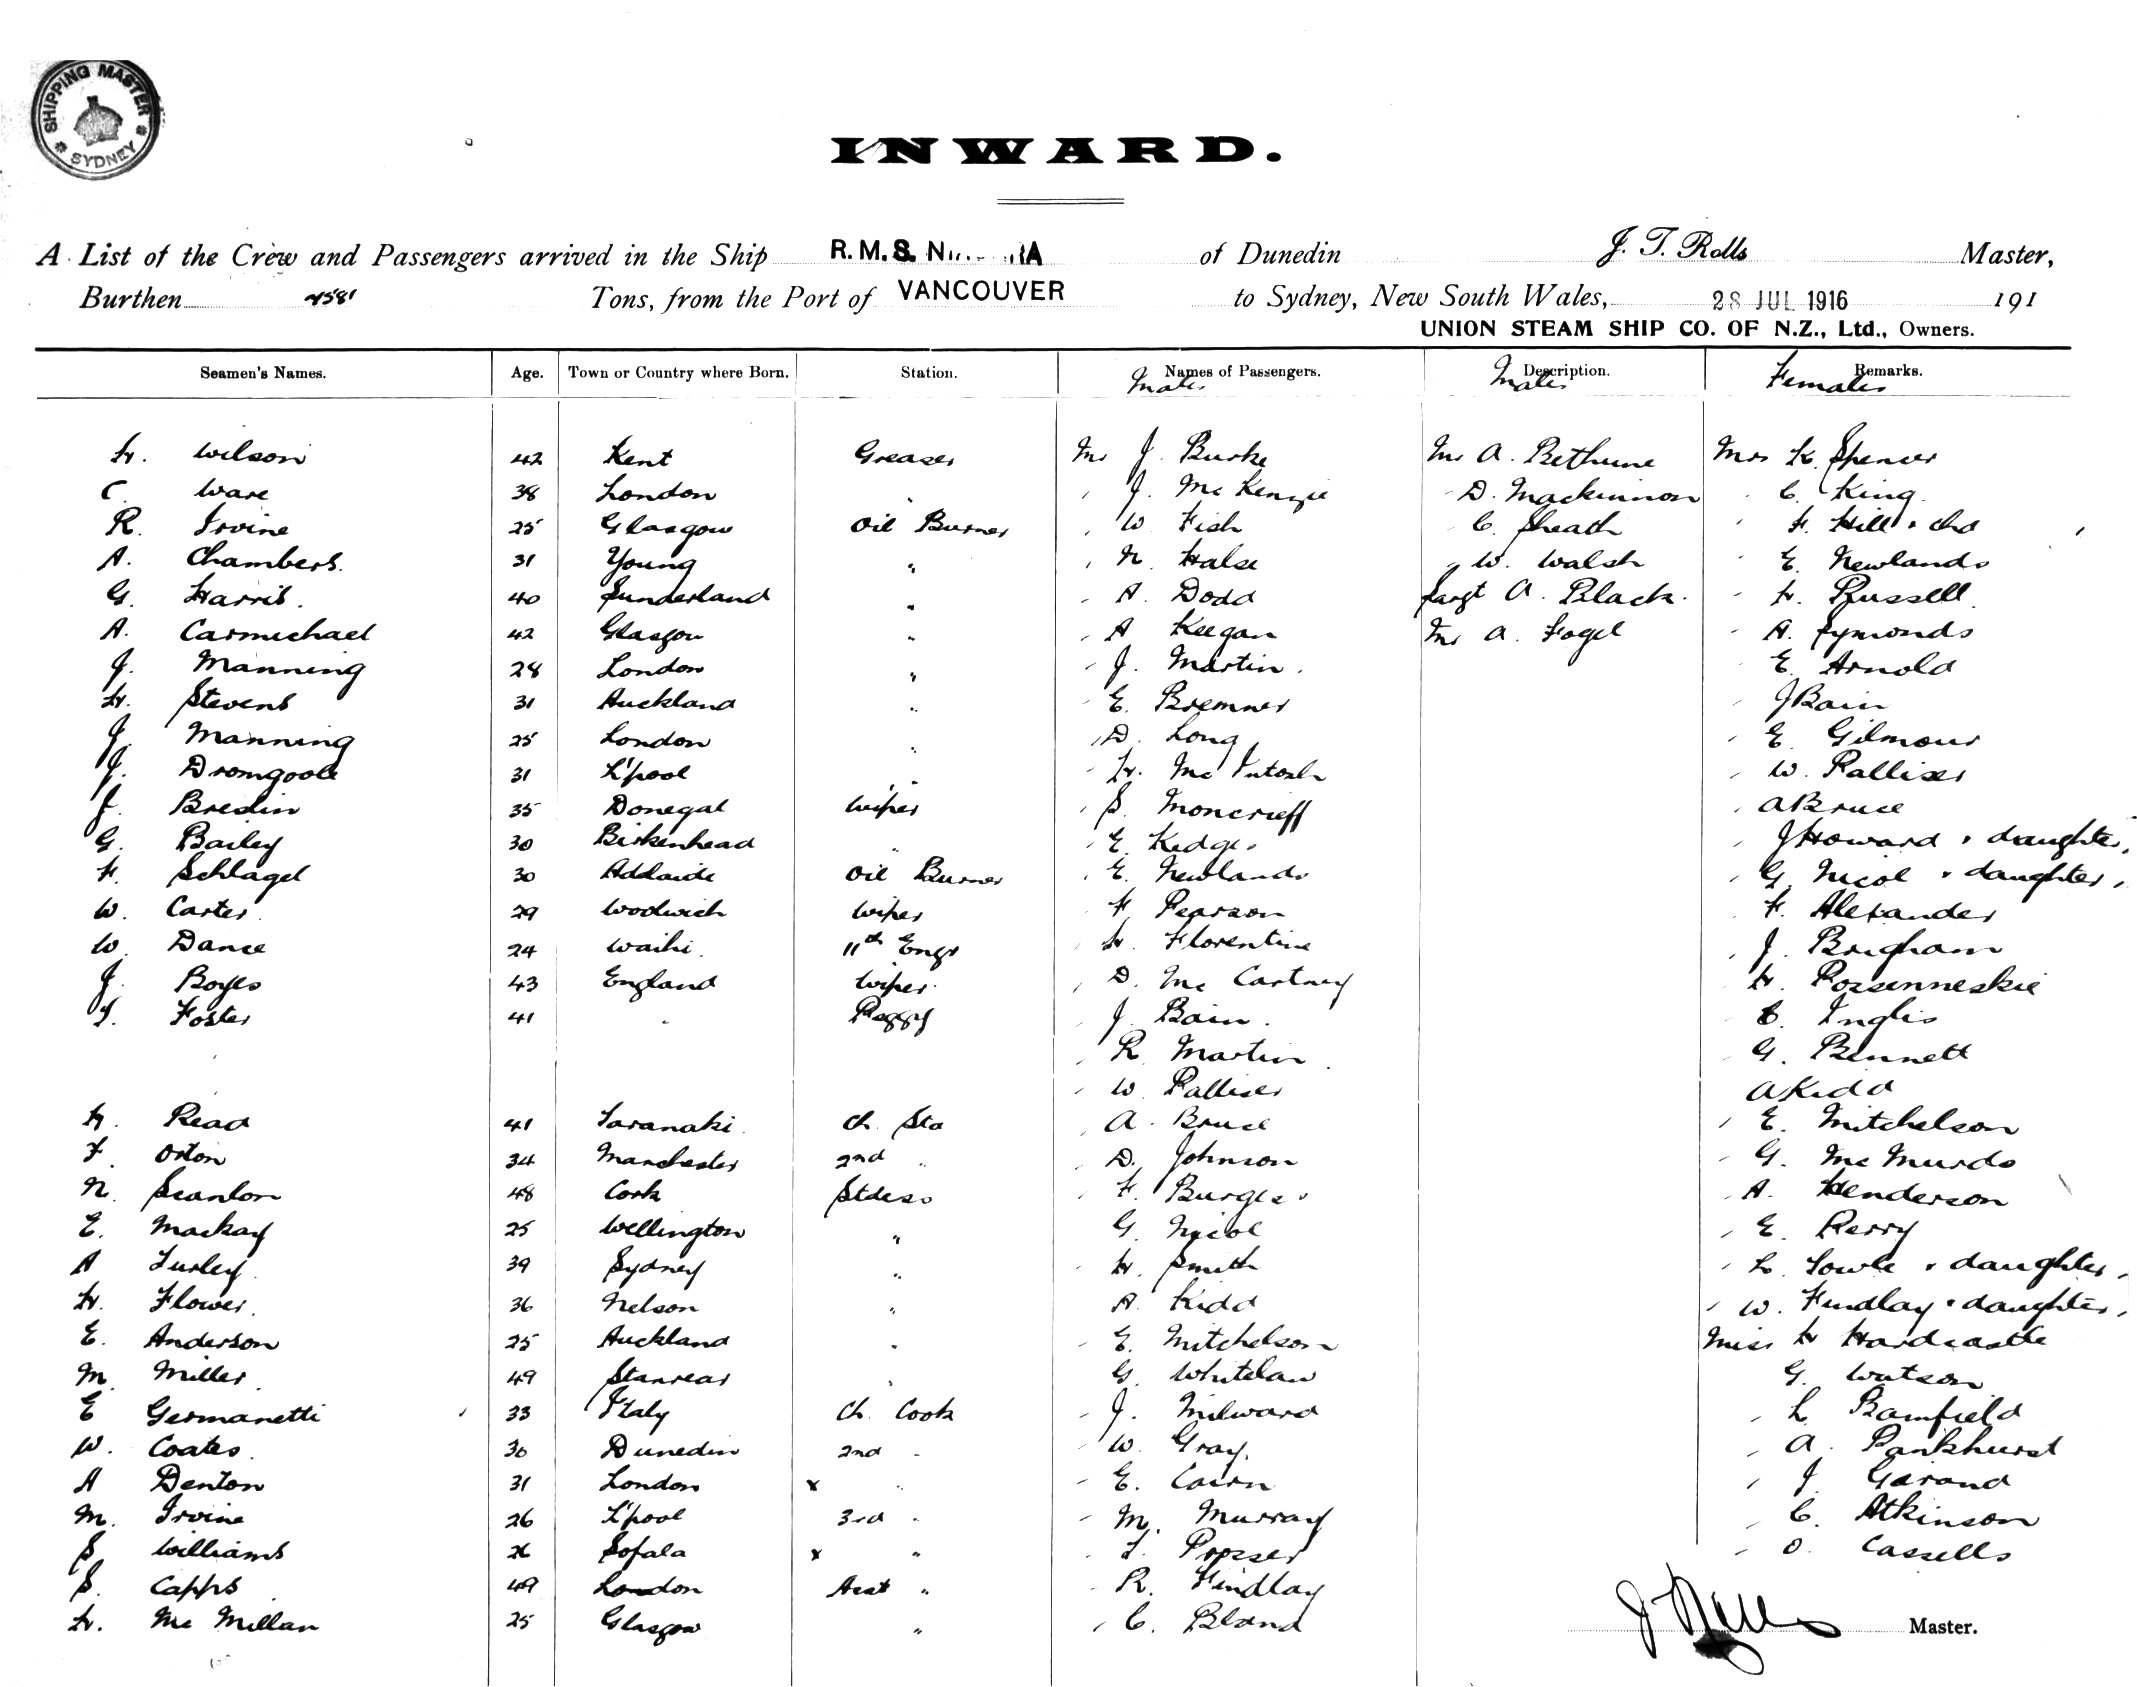 SHIPPING MASTER
SYDNEY
INWARD.
A List of the Crew and Passengers arrived in the Ship R.M.S. of Dunedin J. T. Rolls Master,
Burthen 4581 Tons, from the Port of VANCOUVER to Sydney, New South Wales, 28 JUL 1916 191
UNION STEAM SHIP CO. OF N.Z., Ltd., Owners.
Seamen's Names. Age. Town or Country where Born. Station. Names of Passengers. Description. Remarks.
Males Males Females
H. Wilson 42 Kent Greaser Mr J. Burke Mr A. Bethune Mrs K. Spencer
C. Ware 38 London " J. McKenzie D. Mackinnon C. King
R. Irvine 25 Glasgow Oil Burner W Fish C. Sheath F. Hill & chd
A. Chambers. 31 Young " N. Halse W. Walsh E. Newlands
G. Harris. 40 Sunderland " A. Dodd Sargt A. Black. H. Russell
A. Carmichael 42 Glasgow " A Keegan Mr A. Fogel A. Symonds
J. Manning 28 London " J. Martin. E. Arnold
H. Stevens 31 Auckland " E. Bremner J Bain
J. Manning 25 London " D. Long E. Gilmour
J. Dromgoole 31 L'pool " H. McIntosh W. Palliser
J. Bredin 35 Donegal Wiper S. Moncrieff A Bruce
G. Bailey 30 Birkenhead " E. Kedges J Howard & daughter,
F. Schlagel 30 Adelaide Oil Burner E. Newlands G Nicol & daughter,
W. Carter 29 Woolwich Wiper F Pearson F. Alexander
W. Dance 24 Waihi 11th Engr H. Florentine J. Brigham
J. Boyes 43 England Wiper D. McCartney H. Possenneskie
T. Foster 41 " Peggy J. Bain. C. Inglis
R. Martin G. Bennett
W Palliser A Kidd
H. Read 41 Taranaki Ch. Std A. Bruce E. Mitchelson
F. Orton 34 Manchester 2nd " D. Johnson G. McMurdo
N. Scanlon 48 Cork Stdess F. Burgess A. Henderson
E. Mackay 25 Wellington " G. Nicol E. Perry
A Turley 39 Sydney " H. Smith L. Towle & daughter,
H. Flower. 36 Nelson " A. Kidd W. Findlay & daughter,
E. Anderson 25 Auckland " E. Mitchelson Miss H Hardcastle
M. Miller 49 " G. Whitelaw G. Watson
E Germanetti 33 Italy Ch. Cook J. Milward L. Bamfield
W. Coates. 30 Dunedin 2nd " W. Gray. A. Pankhurst
A Denton 31 London x " E. Cairn J. Garand
M. Irvine 26 L'pool 3rd " M. Murray C. Atkinson
S Williams 26 Sofala x " T. Prosser O. Cassells
S. Capps 49 London Asst " R. Findlay
H. McMillan 25 Glasgow " C. Bland
J Rolls Master.